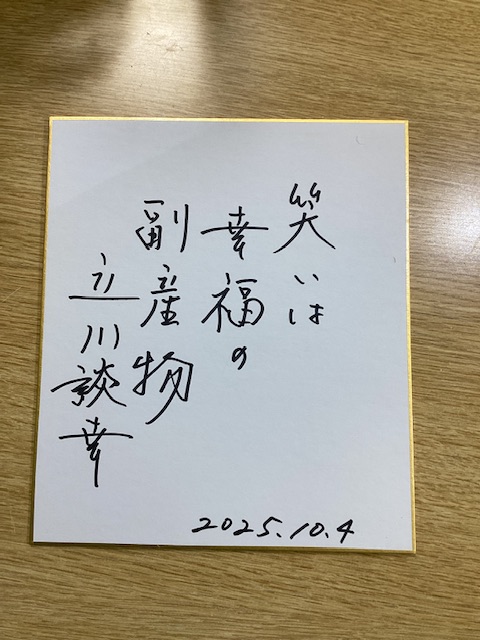 笑いは
幸福の
副産物
立川談幸
2025.10.4